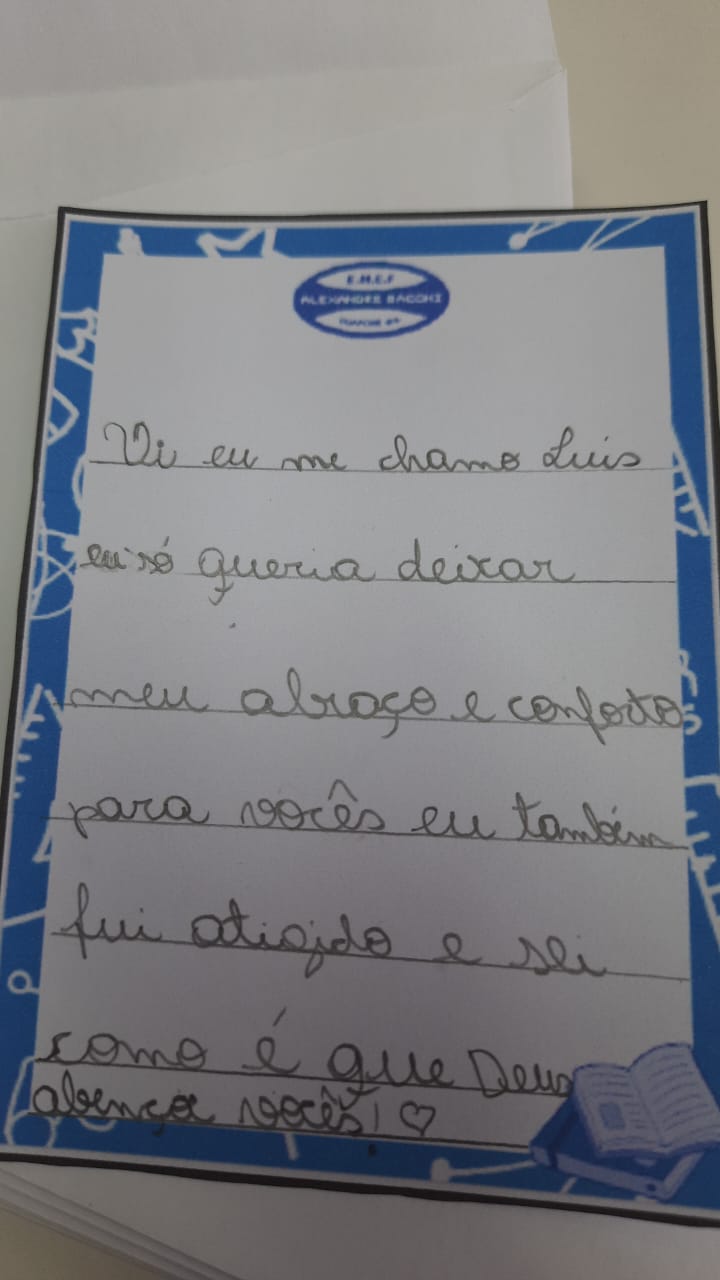 E.M.E.F
ALEXANDRE BACCHI
Oi eu me chamo Luis
eu só queria deixar
meu abraço e conforto
para vocês eu também
fui atiojdo e sei
como é que Deus
abençoe vocês! ♡